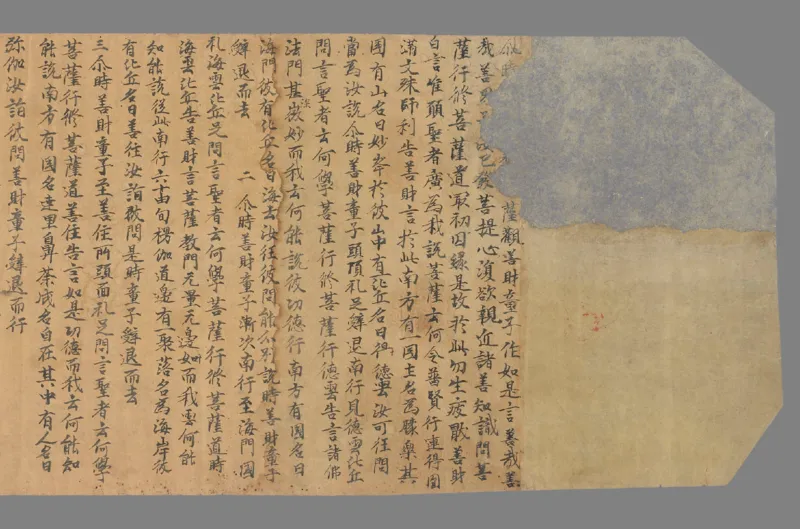 薩觀善財童子作如是言善哉善
哉善已發菩提心復欲親近諸善知識問菩
薩行修菩薩道最初因緣是故於此勿生疲猒善財
白言唯願聖者廣為我說菩薩云何令普賢行速得圓
滿文殊師利告善財言於此南方有一國土名為勝樂其
國有山名曰妙峯於彼山中有比丘名曰德雲汝可往問
當為汝說尒時善財童子頭頂礼足辭退南行見德雲比丘
問言聖者云何學菩薩行修菩薩行德雲告言諸佛
法門甚深微妙而我云何能說彼功德行南方有國名曰
海門彼有比丘名曰海雲汝往彼問能分別說時善財童子
辭退而去 二 尒時善財童子漸次南行至海門國
礼海雲比丘足問言聖者云何學菩薩行修菩薩道時
海雲比丘告善財言菩薩教門无量无邊而我云何能
知能說從此南行六十由旬楞伽道邊有一聚落名為海岸彼
有比丘名曰善住汝詣彼問是時童子辭退而去
三 尒時善財童子至善住所頭面礼足問言聖者云何學
菩薩行修菩薩道善住告言如是功德而我云何能知
能說南方有國名達里鼻荼城名自在其中有人名曰
弥伽汝詣彼問善財童子辭退而行